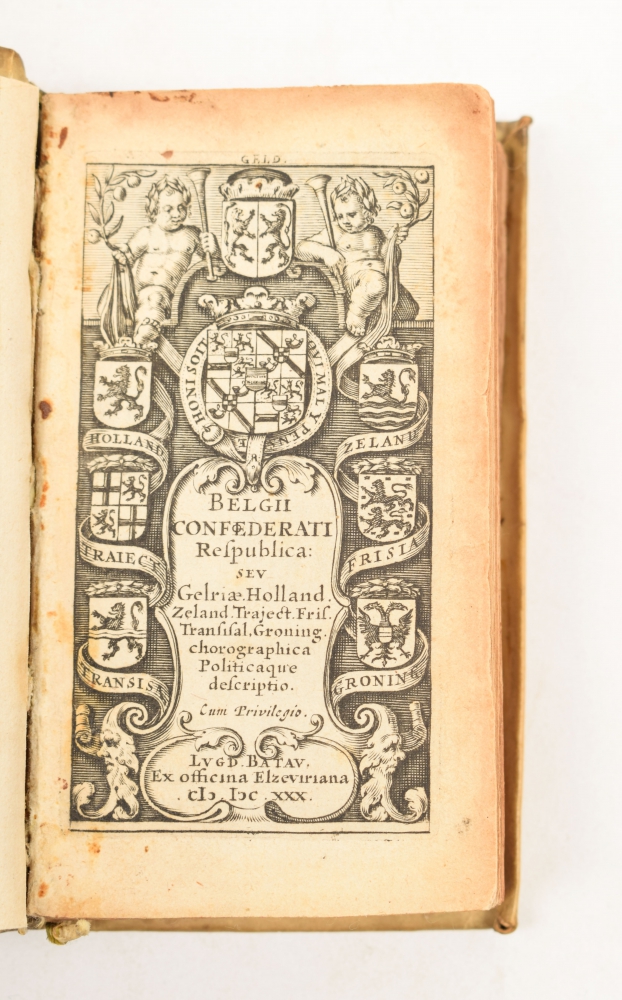 GELD.
HONI SOIT QUI MAL Y PENSE
HOLLAND
ZELAND
TRAIECT
FRISIA
TRANSISA
GRONING
BELGII
CONFŒDERATI
Reſpublica:
SEV
Gelriæ. Holland.
Zeland. Traject. Friſ.
Tranſiſal. Groning.
chorographica
Politicaque
deſcriptio.
Cum Privilegio.
LVGD. BATAV.
Ex officina Elzeviriana
cIↃ. IↃc. xxx.